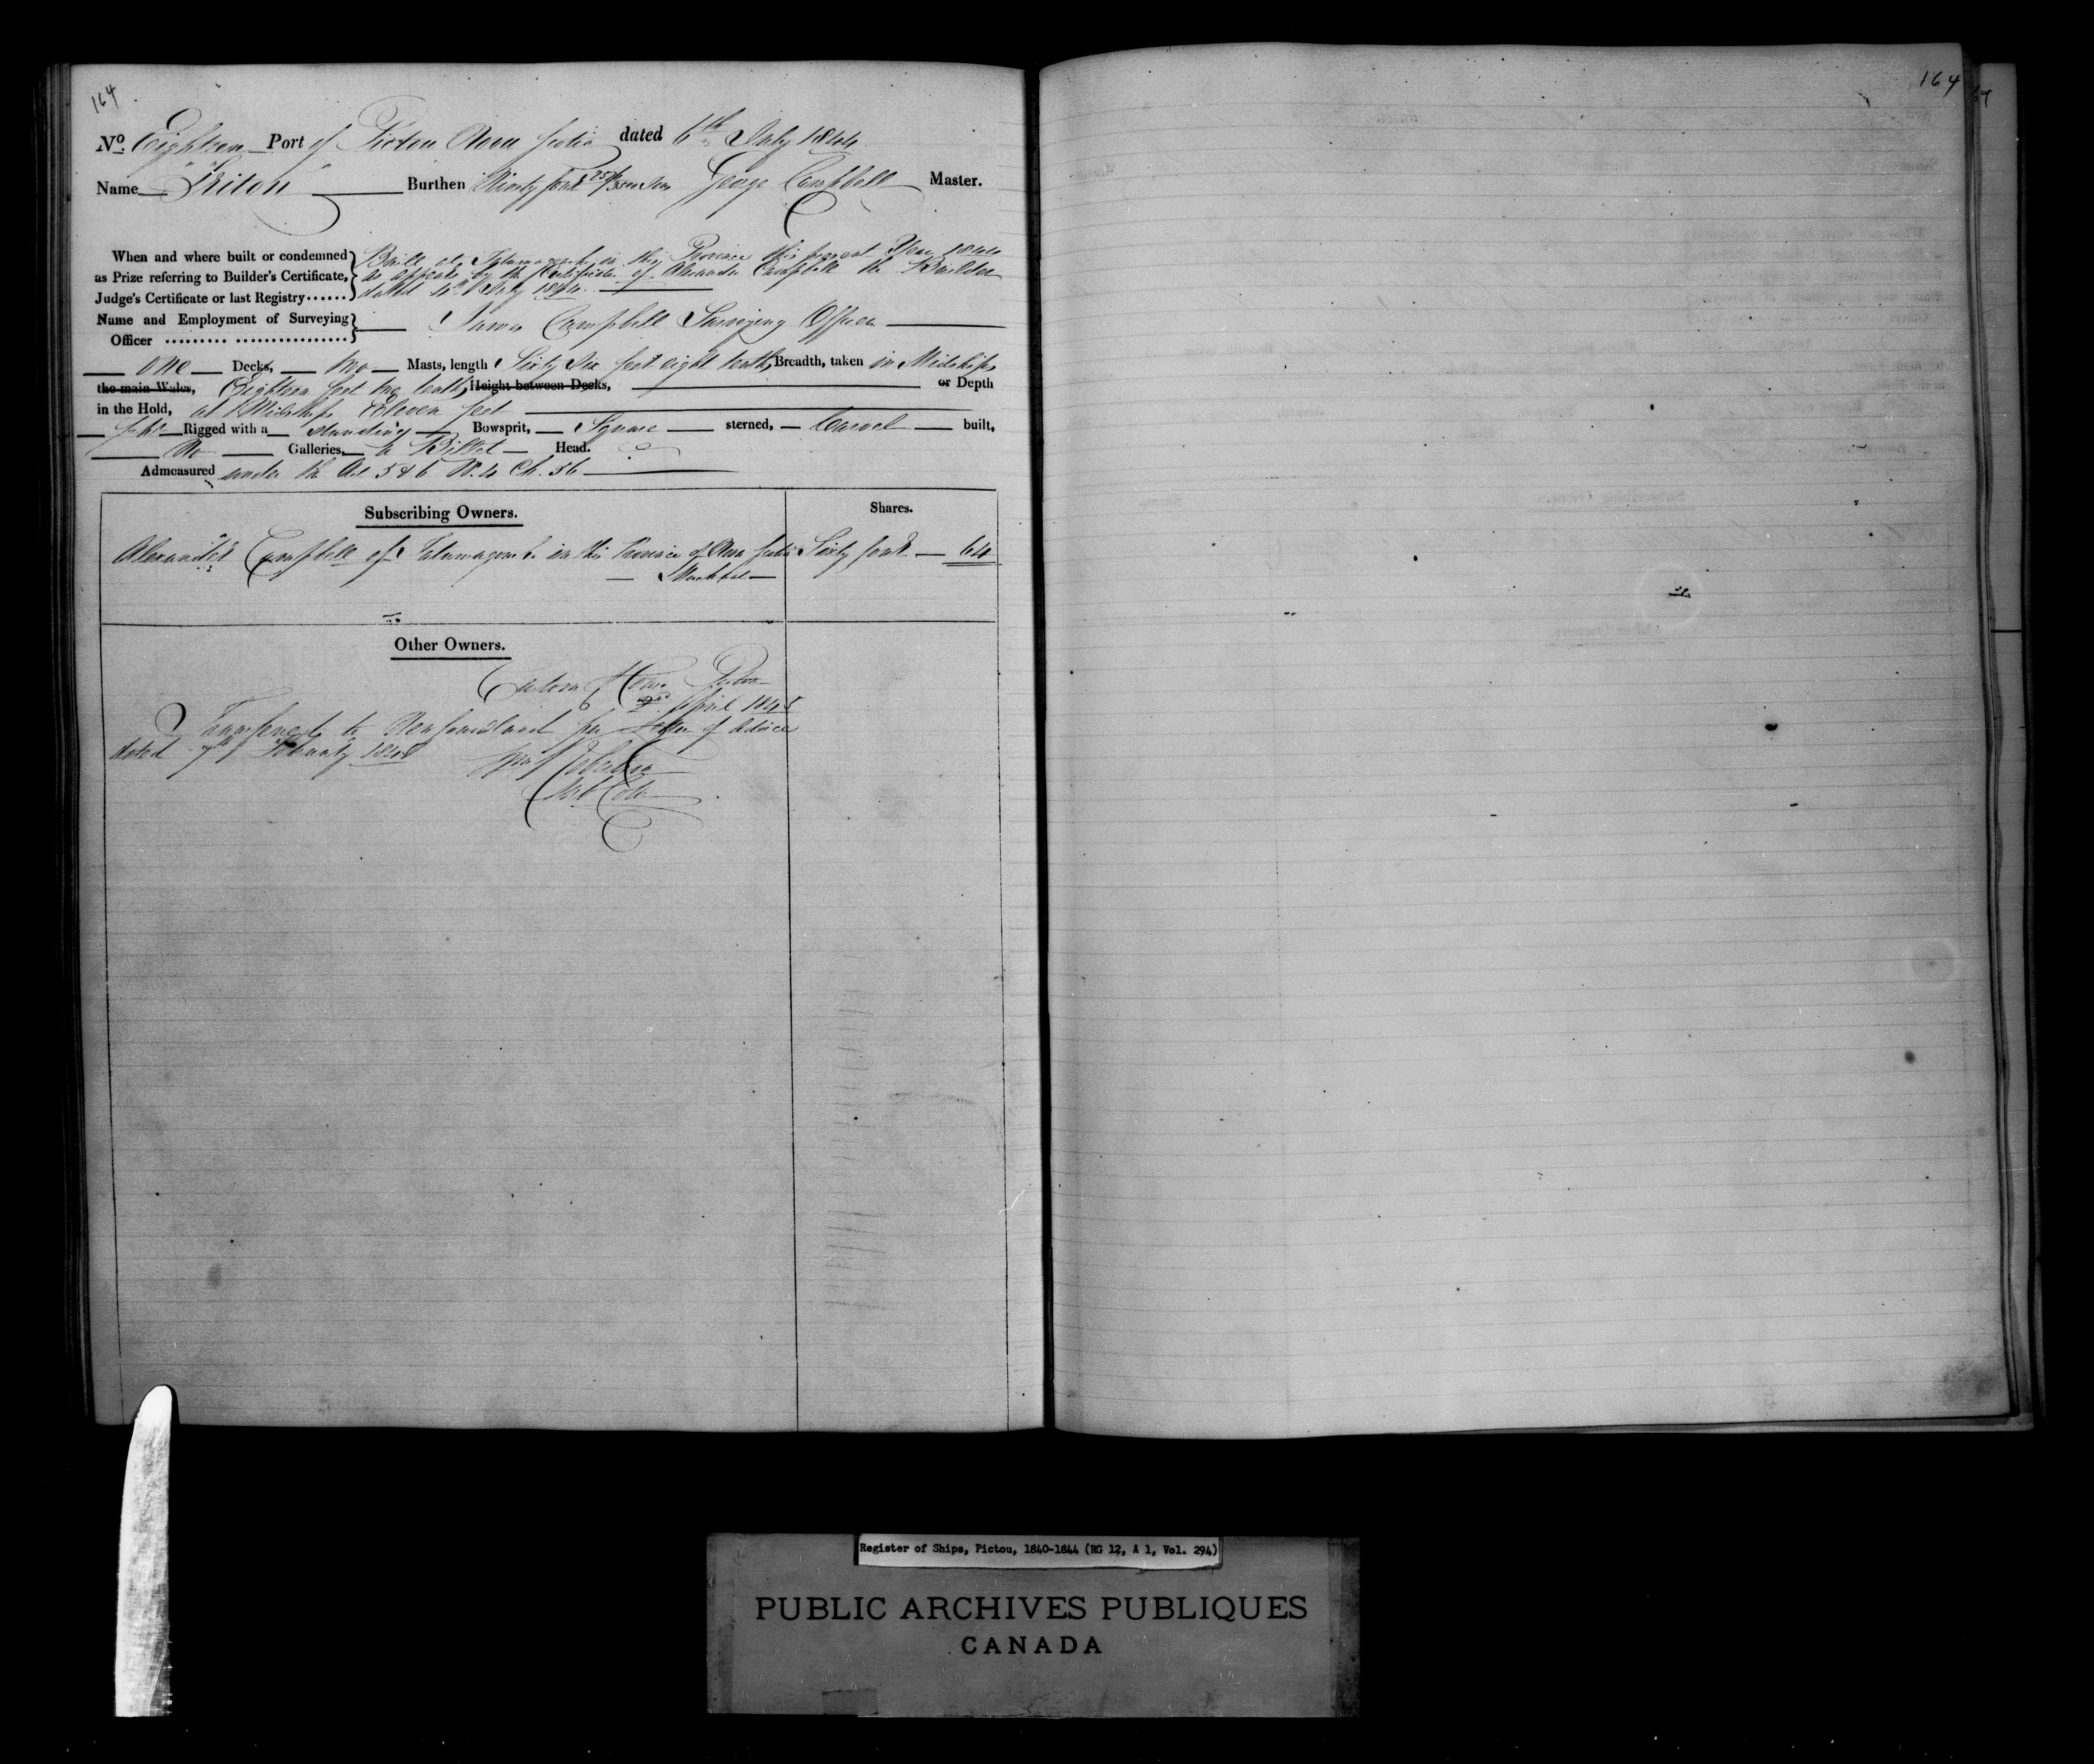 164
164
No. Eighteen Port of Pictou Nova Scotia dated 6th July 1844
Name "Triton" Burthen Ninety four Tons George Campbell Master.
When and where built or condemned as Prize referring to Builder's Certificate, Judge's Certificate or last Registry...... } Built at Tatamagouche in this Province this present Year 1844
as appears by the Certificate of Alexander Campbell the Builder
dated 4th July 1844.
Name and Employment of Surveying Officer } James Campbell Surveying Officer
One Decks, two Masts, length Sixty Six feet eight tenths, Breadth, taken in Midships
the main Wales, Eighteen feet tenths, Height between Decks, or Depth
in the Hold, at Midships Eleven feet
Rigged with a standing Bowsprit, Square sterned, Carvel built,
No Galleries, a Billet Head.
Admeasured under the Act 5 & 6 W. 4 Ch. 56
Subscribing Owners. Shares.
Alexander Campbell of Tatamagouche in the Province of Nova Scotia Sixty four 64
Merchant
Other Owners.
Custom House Pictou
April 1845
Transferred to Newfoundland per Letter of Advice
dated 7th February 1845
Register of Ships, Pictou, 1840-1844 (RG 12, A 1, Vol. 294)
PUBLIC ARCHIVES PUBLIQUES
CANADA